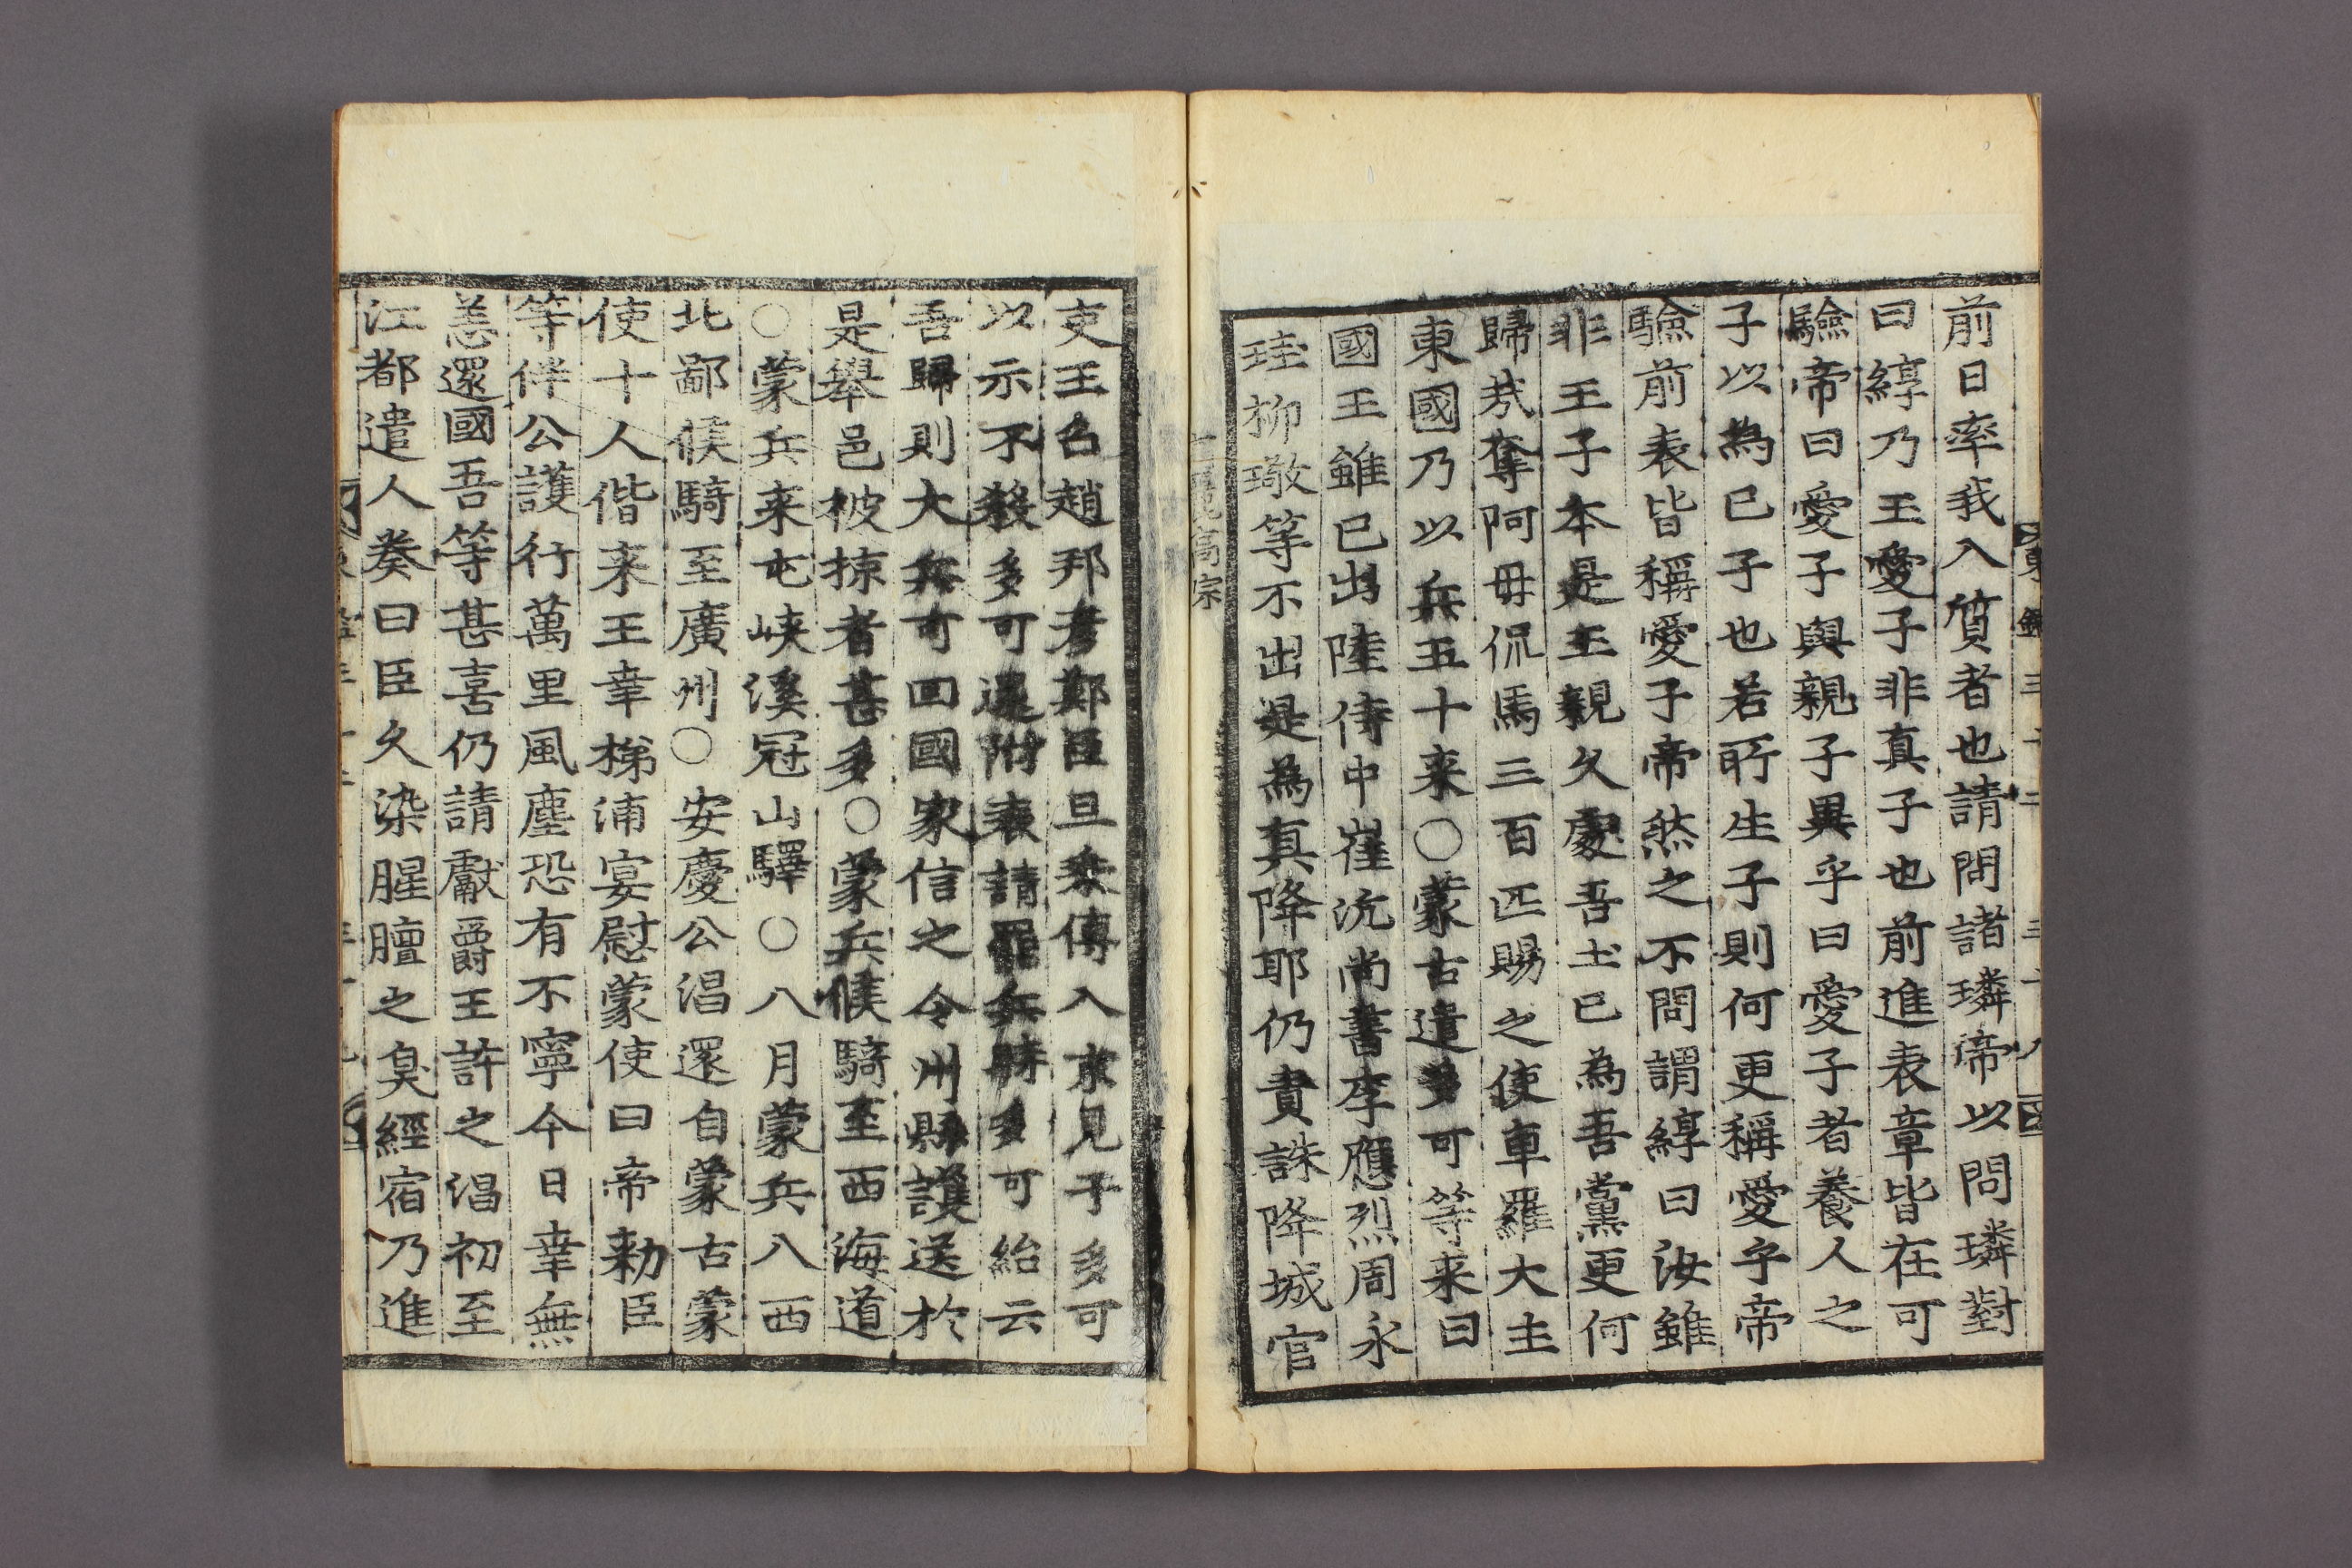 前日率我入質者也請問諸璘帝以問璘對
曰綧乃王愛子非真子也前進表章皆在可
驗帝曰愛子與親子異乎曰愛子者養人之
子以為已子也若所生子則何更稱愛字帝
驗前表皆稱愛子帝然之不問謂綧曰汝雖
非王子本是王親久處吾土已為吾黨更何
歸㢤奪阿毋侃馬三百匹賜之使車羅大主
東國乃以兵五十来○蒙古遣多可等来曰
國王雖已出陸侍中崔沆尚書李應烈周永
珪柳璥等不出是為真降耶仍責誅降城官
高宗
吏王召趙邦彦鄭臣旦乘傳入京見于多可
以示不殺多可還附表請罷兵時多可紿云
吾歸則大兵可回國家信之令州縣護送於
是舉邑被掠者甚多○蒙兵候騎至西海道
○蒙兵来屯峽溪冠山驛○八月蒙兵八西
北鄙候騎至廣州○安慶公淐還自蒙古蒙
使十人偕来王幸梯浦宴慰蒙使曰帝勅臣
等伴公護行萬里風塵恐有不寧今日幸無
恙還國吾等甚喜仍請獻爵王許之淐初至
江都遣人奏曰臣久染腥膻之臭經宿乃進